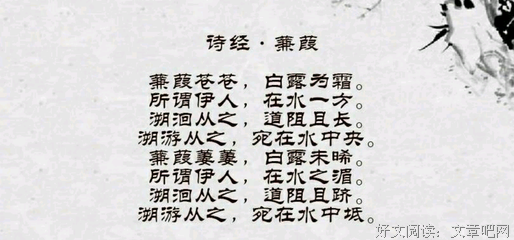 诗经·蒹葭
蒹葭苍苍，白露为霜。
所谓伊人，在水一方。
溯洄从之，道阻且长。
溯游从之，宛在水中央。
蒹葭萋萋，白露未晞。
所谓伊人，在水之湄。
溯洄从之，道阻且跻。
溯游从之，宛在水中坻。
好文阅读：文章吧网